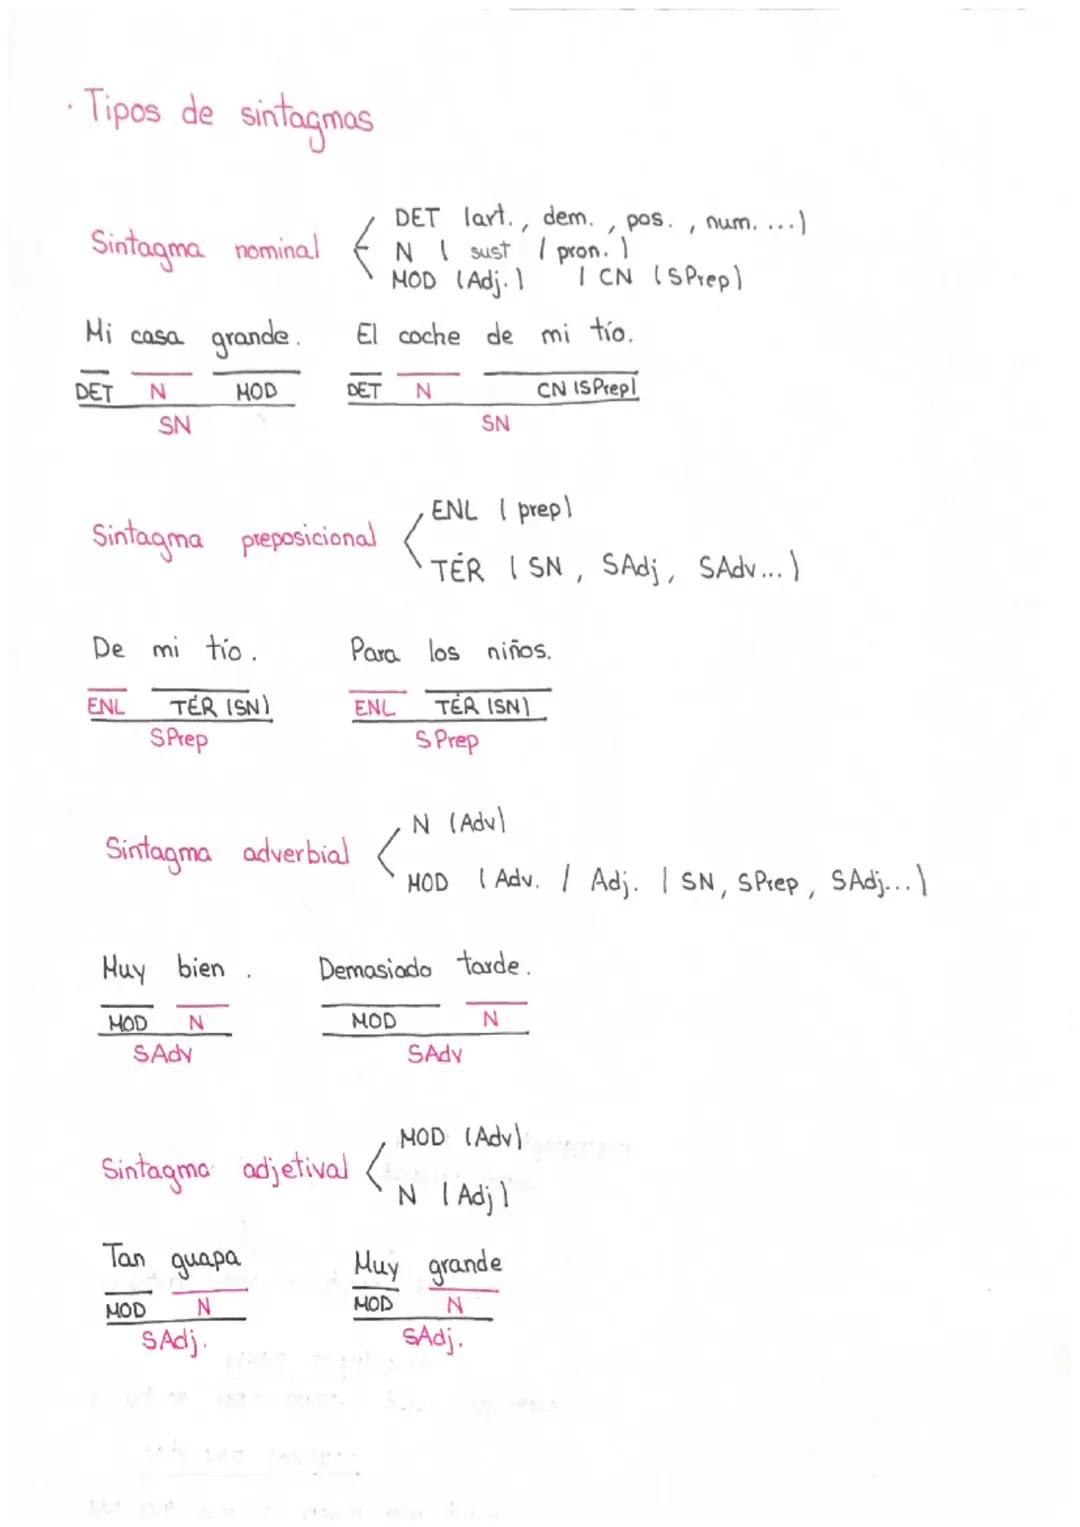 · Tipos de sintagmas
DET (art., dem., pos., num. ...)
Sintagma nominal
N ( sust / pron. )
MOD (Adj.) / CN (SPrep)
Mi casa grande. El coche de mi tío.
DET N MOD DET N CN (SPrep)
SN SN
ENL ( prep)
Sintagma preposicional
TÉR ( SN, SAdj, SAdv...)
De mi tío. Para los niños.
ENL TÉR (SN) ENL TÉR (SN)
SPrep SPrep
N (Adv)
Sintagma adverbial
MOD ( Adv. / Adj. / SN, SPrep, SAdj...)
Muy bien. Demasiado tarde.
MOD N MOD N
SAdv SAdv
MOD (Adv)
Sintagma adjetival
N (Adj)
Tan guapa Muy grande
MOD N MOD N
SAdj. SAdj.